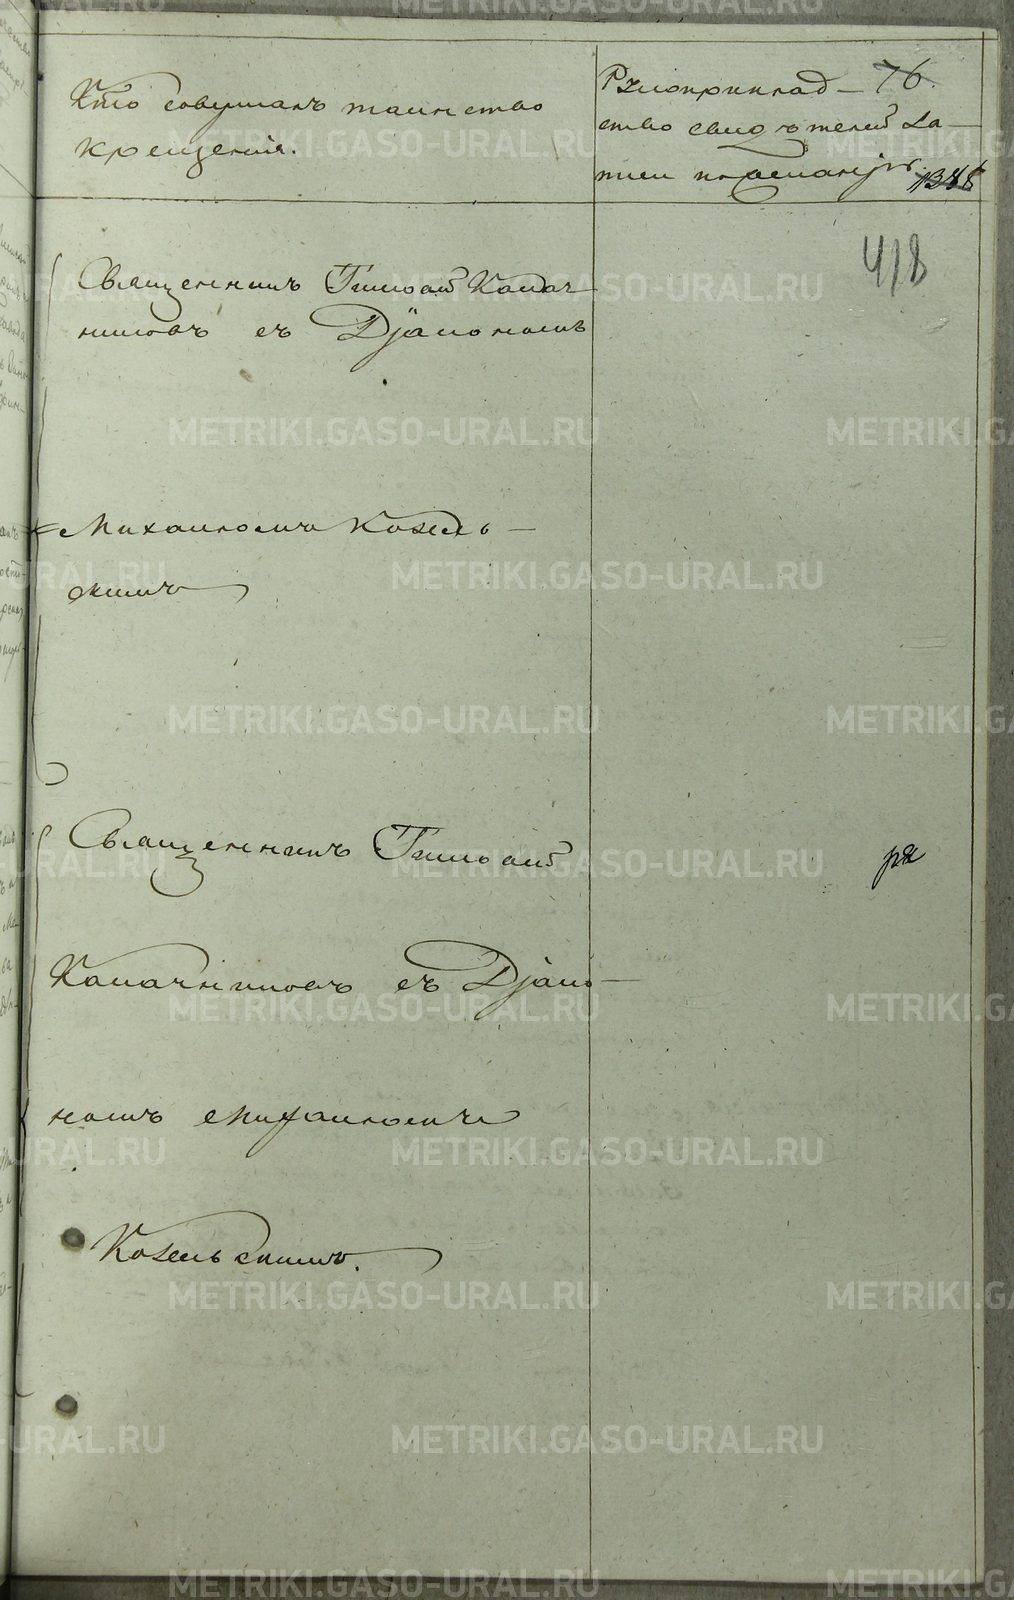 Кто совершалъ таинство
крещенія.
Рукоприклад-
ство свидѣтелей за-
писи по желанію.
76.
1388
418
Священникъ Тимоѳей Калач-
никовъ съ Діакономъ
Михаиломъ Козель-
скимъ
Священникъ Тимоѳей
Калачниковъ съ Діако-
номъ Михаиломъ
Козельскимъ.
METRIKI.GASO-URAL.RU